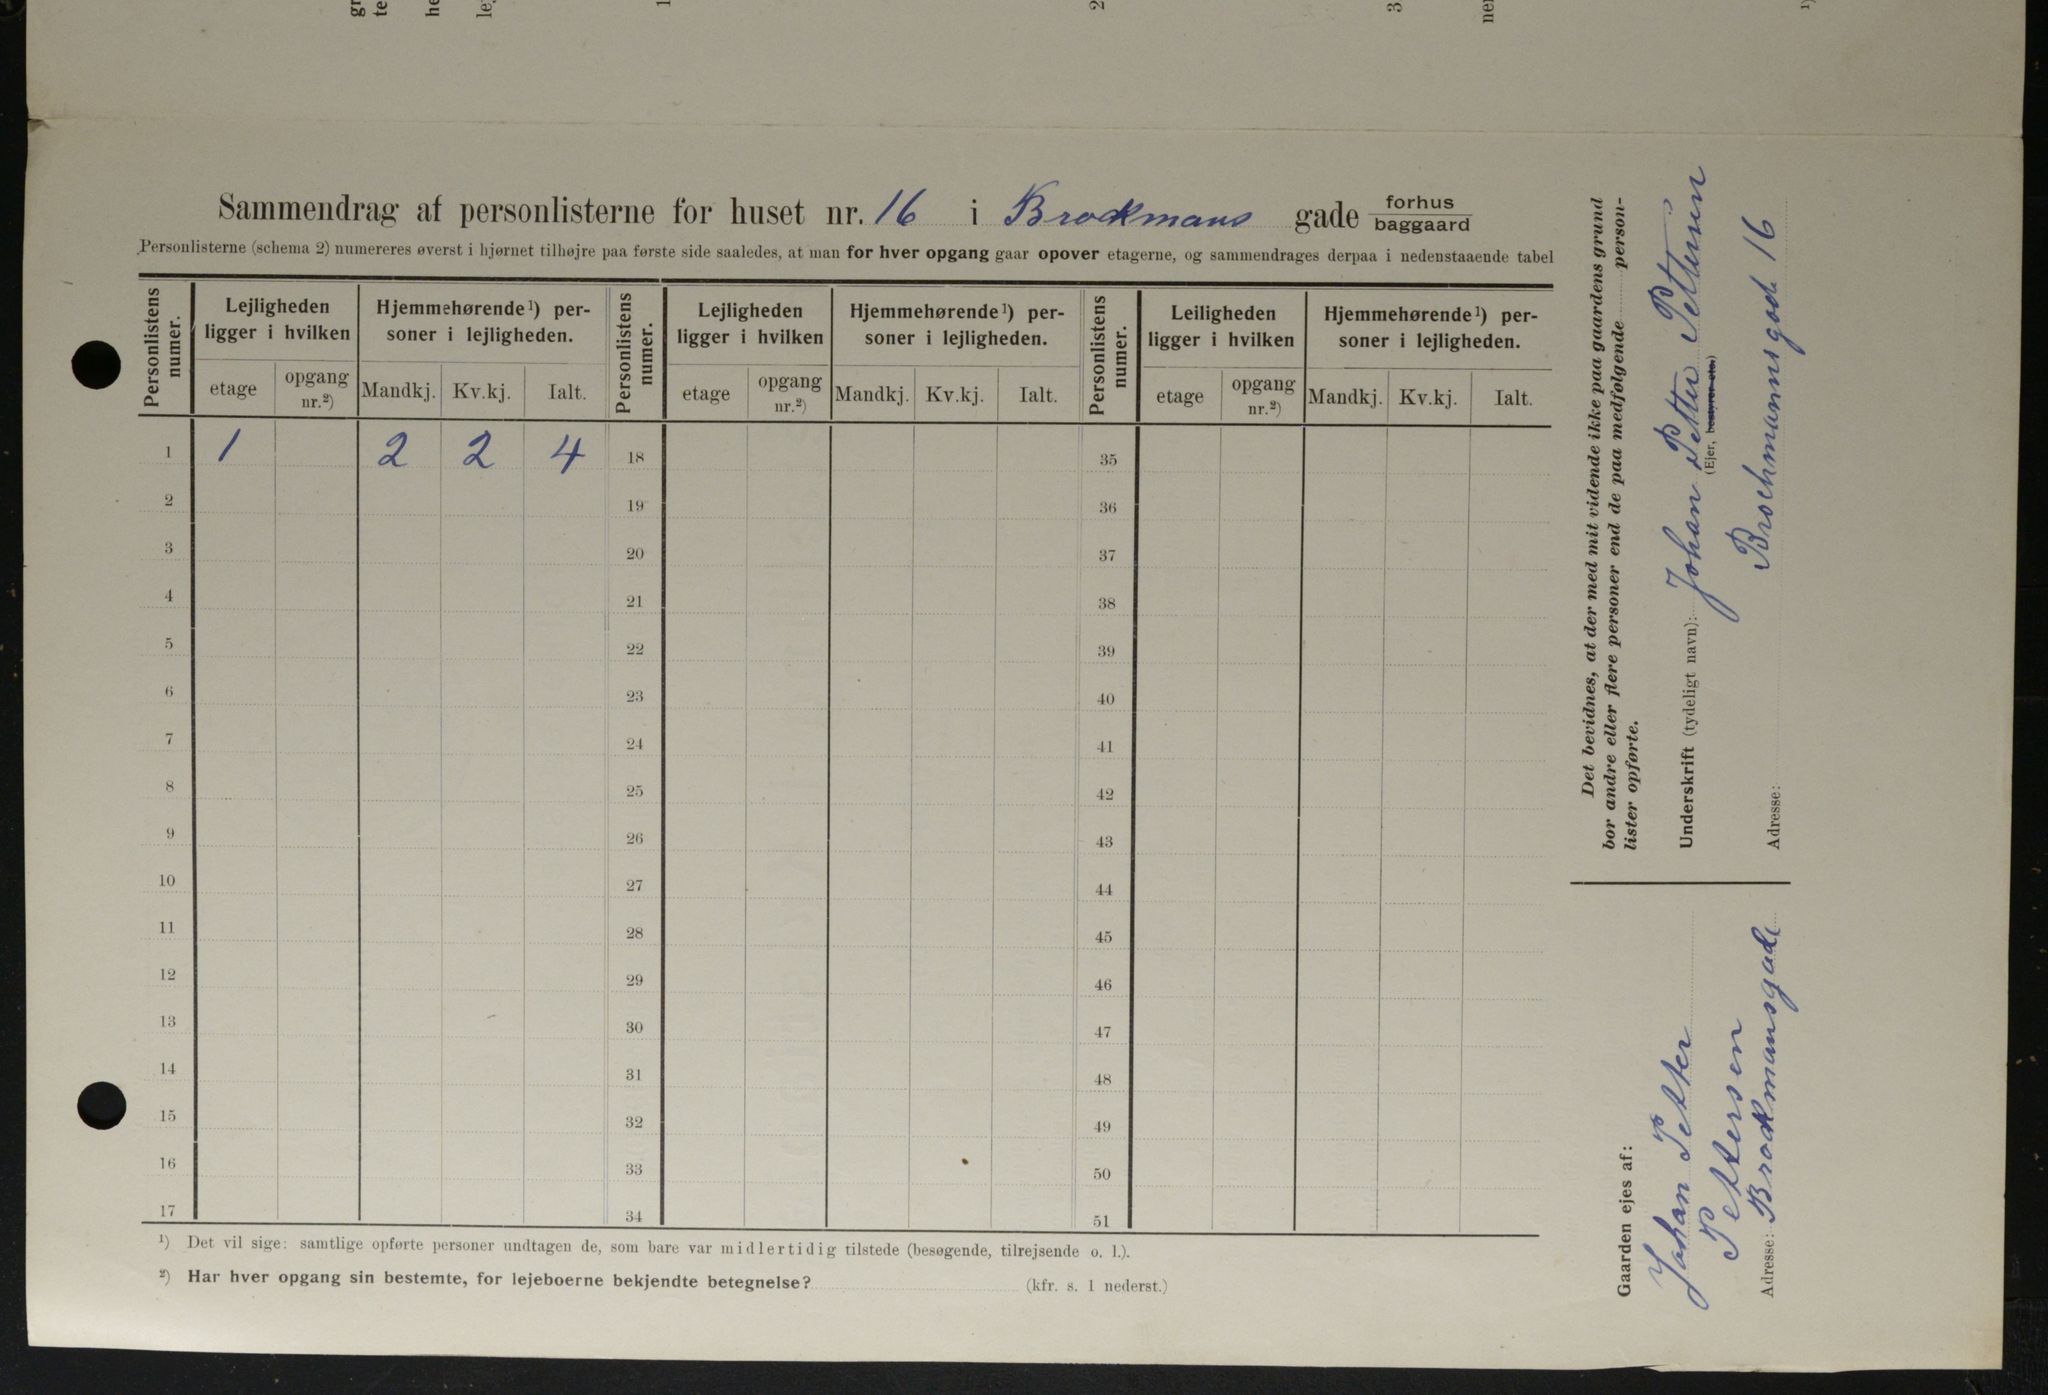 Sammendrag af personlisterne for huset nr. 16 i Brockmans gade forhus baggaard
Personlisterne (schema 2) numereres øverst i hjørnet tilhøjre paa første side saaledes, at man for hver opgang gaar opover etagerne, og sammendrages derpaa i nedenstaaende tabel
Personlistens numer. Lejligheden ligger i hvilken Hjemmehørende¹) personer i lejligheden. Personlistens numer. Lejligheden ligger i hvilken Hjemmehørende¹) personer i lejligheden. Personlistens numer. Leiligheden ligger i hvilken Hjemmehørende¹) personer i lejligheden.
etage opgang nr.²) Mandkj. Kv.kj. Ialt. etage opgang nr.²) Mandkj. Kv.kj. Ialt. etage opgang nr.²) Mandkj. Kv.kj. Ialt.
1 1 2 2 4 18 35
2 19 36
3 20 37
4 21 38
5 22 39
6 23 40
7 24 41
8 25 42
9 26 43
10 27 44
11 28 45
12 29 46
13 30 47
14 31 48
15 32 49
16 33 50
17 34 51
¹) Det vil sige: samtlige opførte personer undtagen de, som bare var midlertidig tilstede (besøgende, tilrejsende o. l.).
²) Har hver opgang sin bestemte, for lejeboerne bekjendte betegnelse? (kfr. s. 1 nederst.)
Det bevidnes, at der med mit vidende ikke paa gaardens grund
bor andre eller flere personer end de paa medfølgende person-
lister opførte.
Underskrift (tydeligt navn): Johan Petter Pettersen
(Ejer, bestyrer etc.)
Adresse: Brochmannsgade 16
Gaarden ejes af:
Johan Petter
Pettersen
Adresse: Brockmansgade